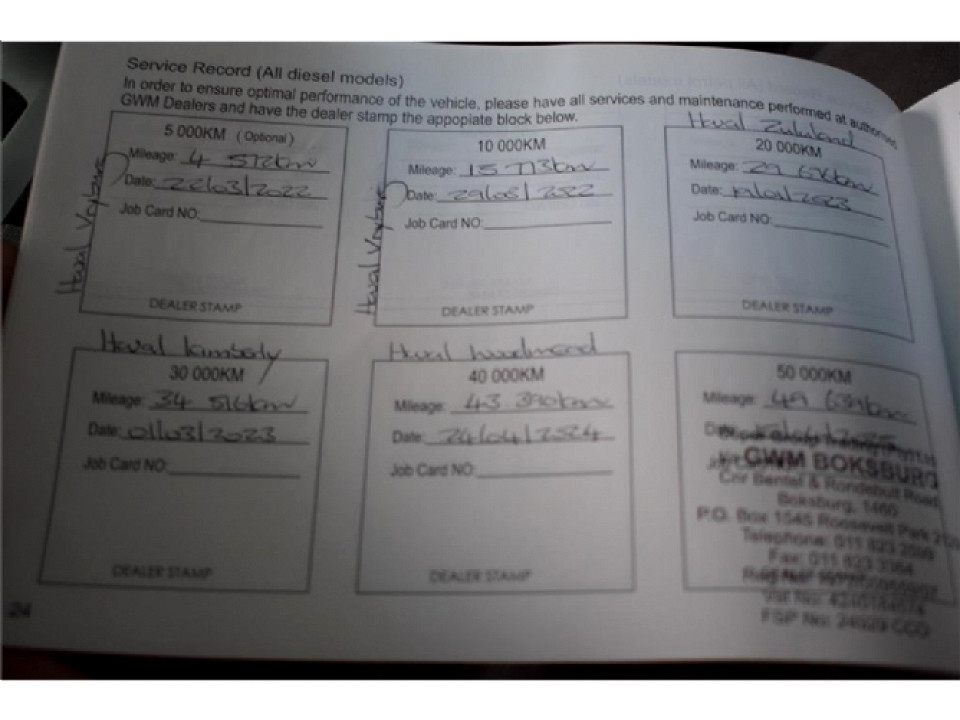 Service Record (All diesel models)
In order to ensure optimal performance of the vehicle, please have all services and maintenance performed at authorised
GWM Dealers and have the dealer stamp the appopiate block below.
5 000KM (Optional)
Mileage: 4 512km
Date: 22/03/2022
Job Card NO:
DEALER STAMP
Haval Vryburg
10 000KM
Mileage: 15 713km
Date: 29/08/2022
Job Card NO:
DEALER STAMP
Haval Vryburg
Haval Zululand
20 000KM
Mileage: 29 616km
Date: /2023
Job Card NO:
DEALER STAMP
Haval kimberly
30 000KM
Mileage: 34 516km
Date: 01/03/2023
Job Card NO:
DEALER STAMP
Haval
40 000KM
Mileage: 43 390km
Date: 24/04/2024
Job Card NO:
DEALER STAMP
50 000KM
Mileage: 49 639km
Date:
GWM BOKSBURG
Cnr Bentel & Rondebult Road
Boksburg, 1460
P.O. Box 1545 Roosevelt Park
Telephone: 011 823
Fax: 011 823
Vat No:
FSP No: 24929
24